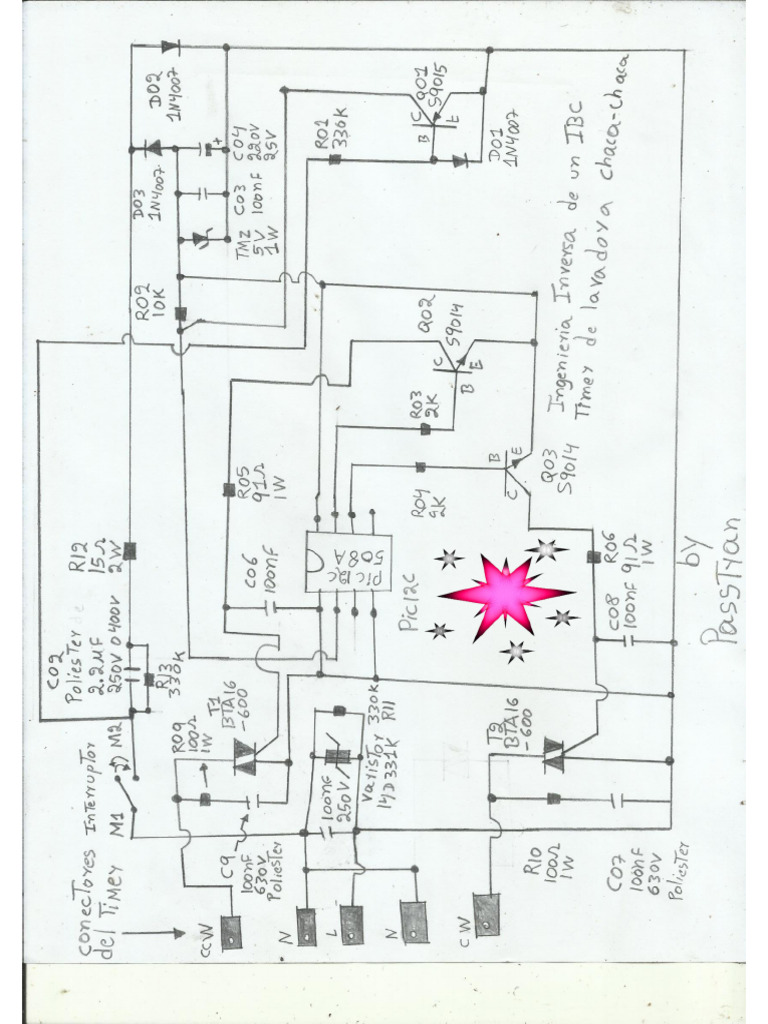 Ingenieria Inversa de un IBC
Timer de lavadora chaca-chaca
by
PassTyan
D02
1N4007
D03
1N4007
C04
220V
25V
C03
100nF
TMZ
5V
1W
R09
10K
R01
330K
Q01
S9015
C
B
E
D01
1N4007
Q02
S9014
C
B
E
R03
2K
R04
2K
Q03
S9014
B
E
C
R05
91Ω
1W
C06
100nF
Pic12C
508A
Pic12C
R06
91Ω
1W
C08
100nF
R12
15Ω
2W
C02
Poliester de
2.2MF
250V o 400V
R13
330K
Interruptor
M1
M2
R09
100Ω
1W
T1
BTA16
-600
C9
100nF
630V
Poliester
100nF
250V
Varistor
14D331K
330K
R11
T2
BTA16
-600
R10
100Ω
1W
C07
100nF
630V
Poliester
Conectores
del Timer
CCW
N
L
N
CW